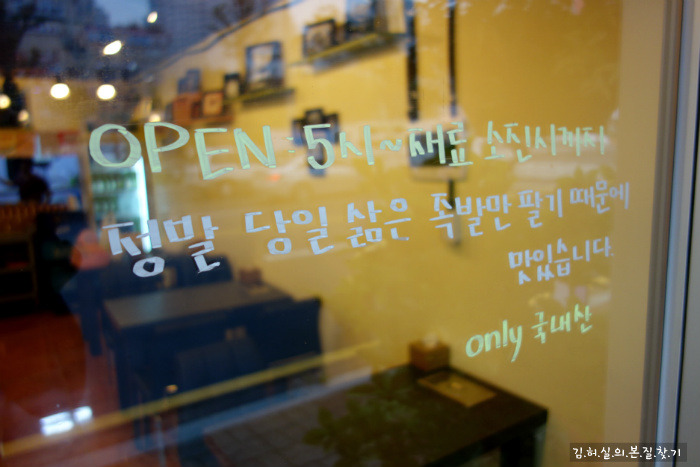 OPEN : 5시~재료 소진시까지
정말 당일 삶은 족발만 팔기 때문에
맛있습니다.
only 국내산
김.허실의.본.질.찾.기